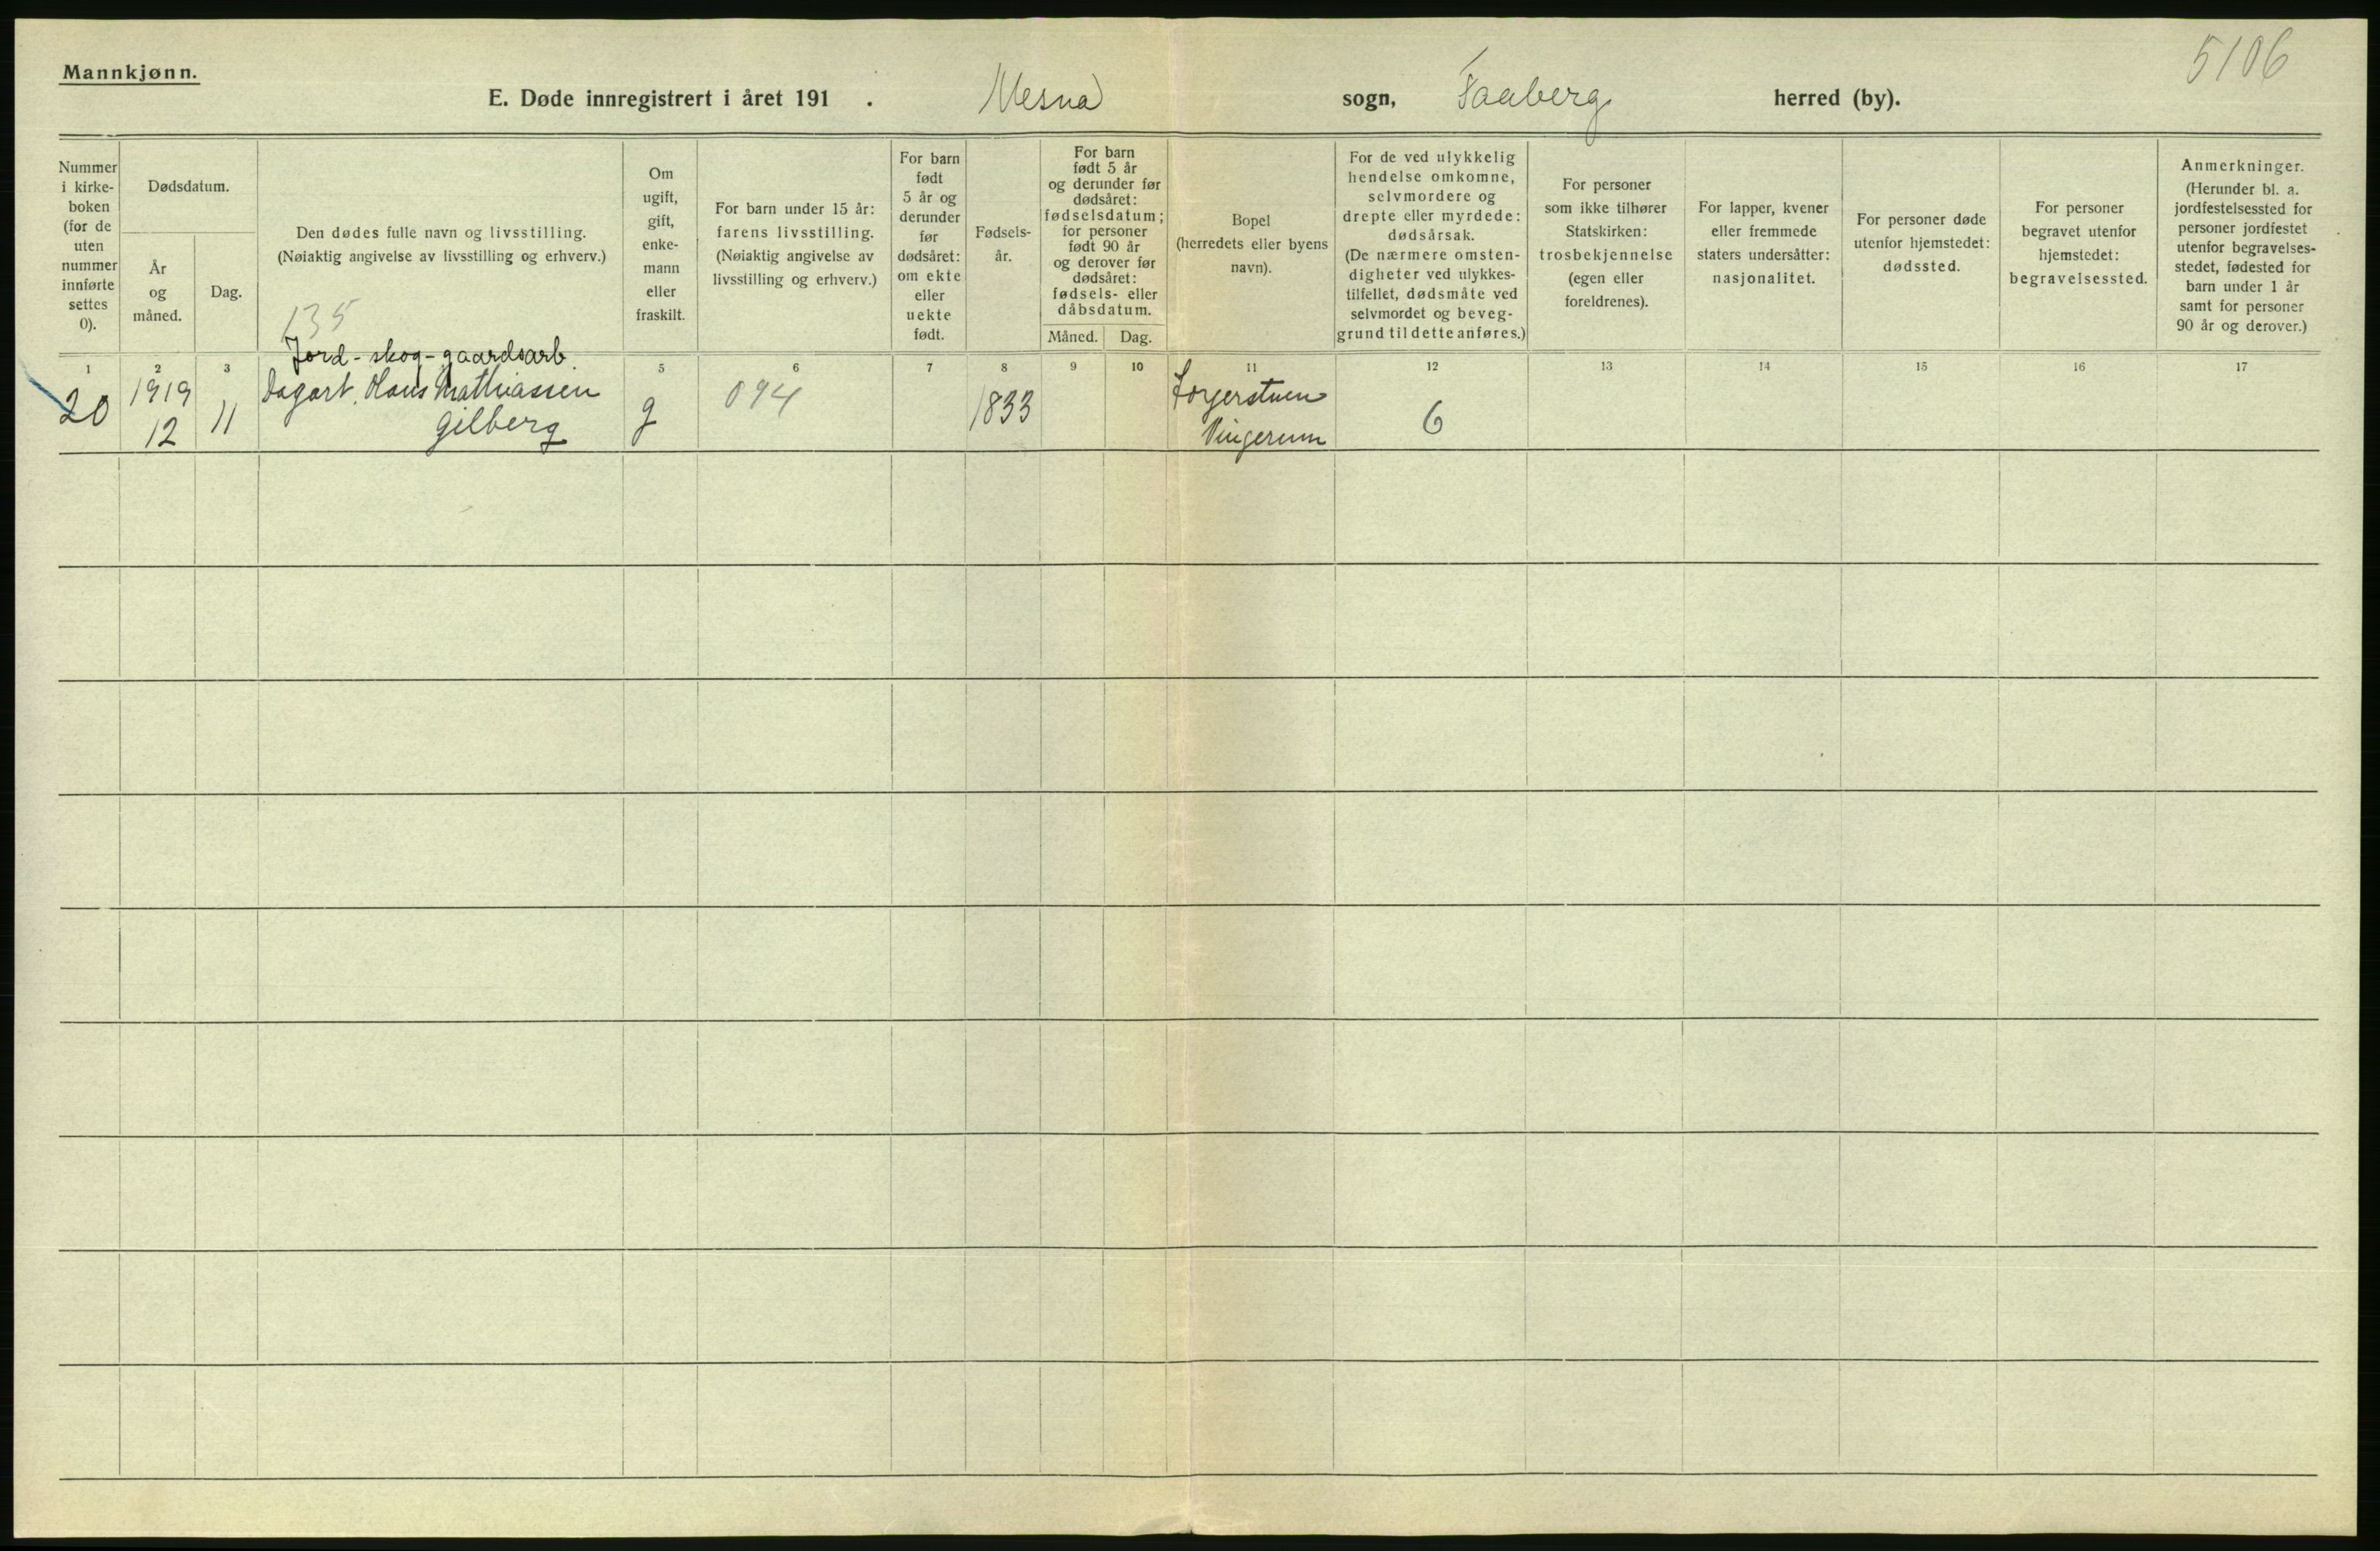 5106
Mannkjønn.
E. Døde innregistrert i året 191 . Mesna sogn, Faaberg herred (by).
Nummer
i kirke-
boken
(for de
uten
nummer
innførte
settes
0).
Dødsdatum.
År
og
måned.
Dag.
Den dødes fulle navn og livsstilling.
(Nøiaktig angivelse av livsstilling og erhverv.)
Om
ugift,
gift,
enke-
mann
eller
fraskilt.
For barn under 15 år:
farens livsstilling.
(Nøiaktig angivelse av
livsstilling og erhverv.)
For barn
født
5 år og
derunder
før
dødsåret:
om ekte
eller
uekte
født.
Fødsels-
år.
For barn
født 5 år
og derunder før
dødsåret:
fødselsdatum;
for personer
født 90 år
og derover før
dødsåret:
fødsels- eller
dåbsdatum.
Måned. Dag.
Bopel
(herredets eller byens
navn).
For de ved ulykkelig
hendelse omkomne,
selvmordere og
drepte eller myrdede:
dødsårsak.
(De nærmere omsten-
digheter ved ulykkes-
tilfellet, dødsmåte ved
selvmordet og beveg-
grund til dette anføres.)
For personer
som ikke tilhører
Statskirken:
trosbekjennelse
(egen eller
foreldrenes).
For lapper, kvener
eller fremmede
staters undersåtter:
nasjonalitet.
For personer døde
utenfor hjemstedet:
dødssted.
For personer
begravet utenfor
hjemstedet:
begravelsessted.
Anmerkninger.
(Herunder bl. a.
jordfestelsessted for
personer jordfestet
utenfor begravelses-
stedet, fødested for
barn under 1 år
samt for personer
90 år og derover.)
135
Jord-skog-gaardsarb.
1 2 3 5 6 7 8 9 10 11 12 13 14 15 16 17
20 1919 12 11
Dagarb. Hans Mathiassen
Gilberg
g 094 1833
Vingerum
6